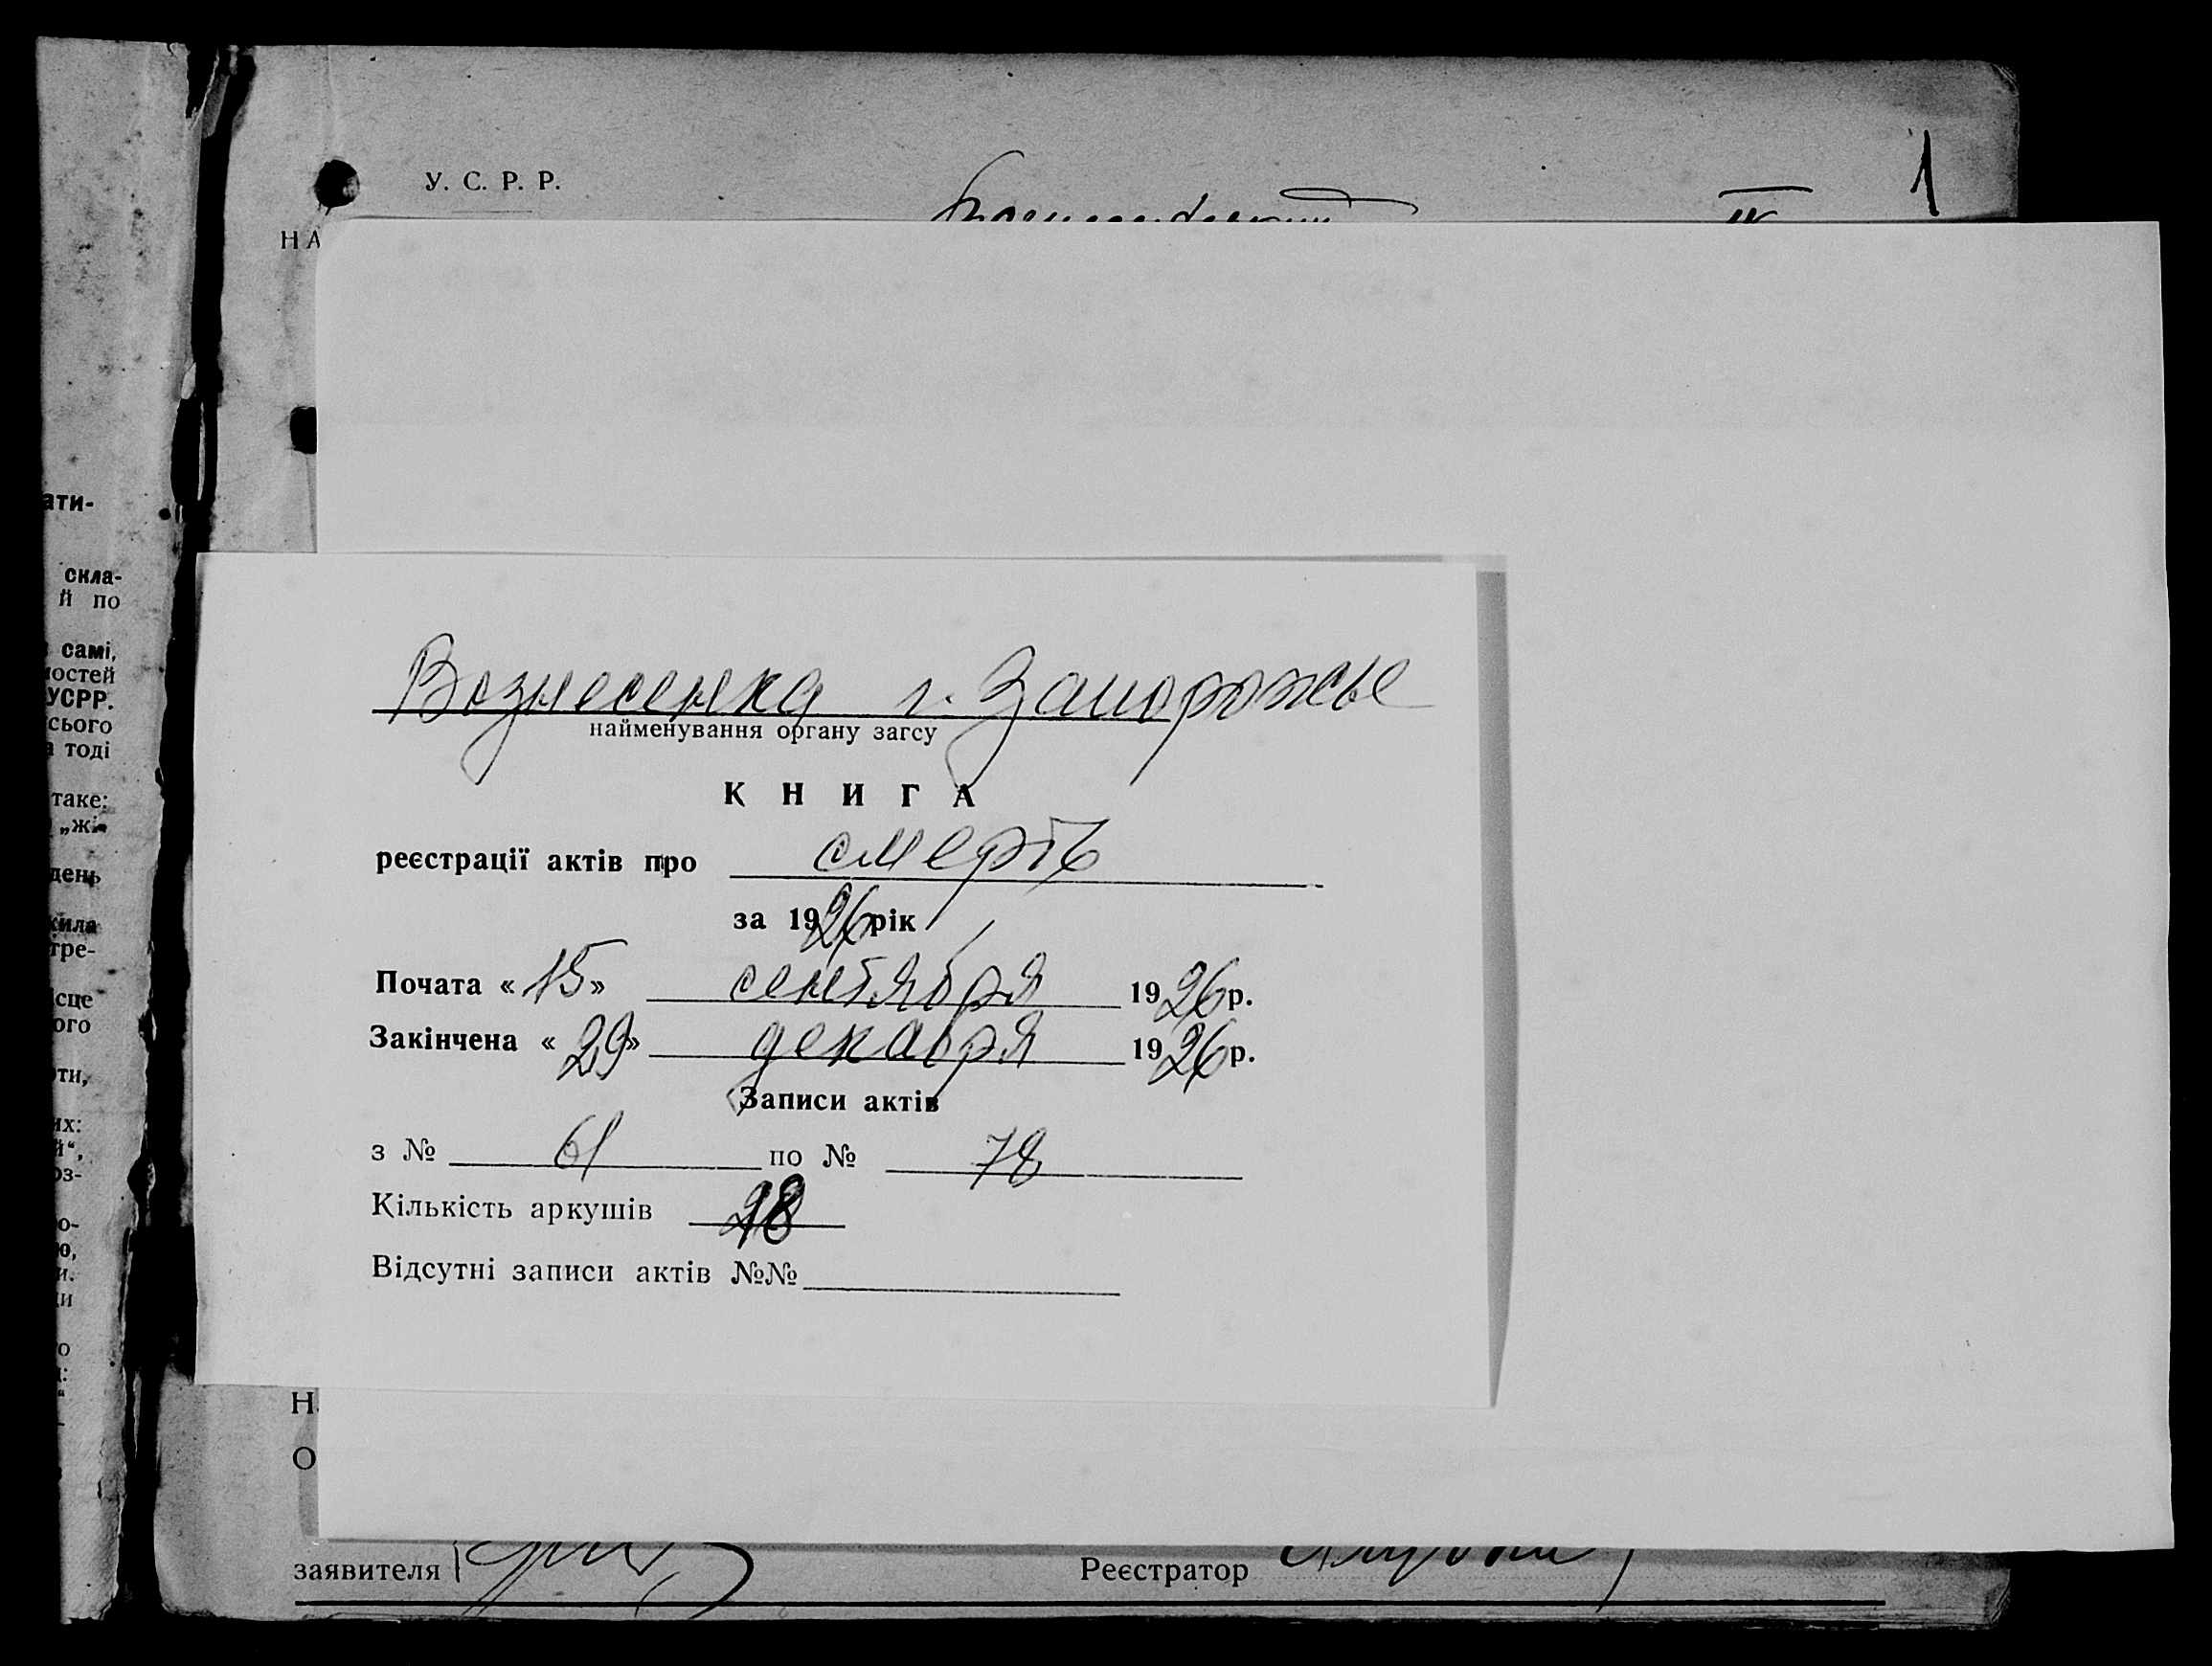 ати-
скла-
й по
самі,
ностей
УСРР.
сього
тоді
таке:
„жі-
день
жила
тре-
сце
ого
оти,
их:
й“,
оз-
о-
ю,
и.
ди
о
У. С. Р. Р.
1
НА
IV
Вознесенка г. Запорожье
найменування органу загсу
КНИГА
реєстрації актів про смерть
за 1926 рік
Почата «15» сентября 1926 р.
Закінчена «29» декабря 1926 р.
Записи актів
з № 61 по № 78
Кількість аркушів 18
Відсутні записи актів №№
Н
О
заявителя Реєстратор